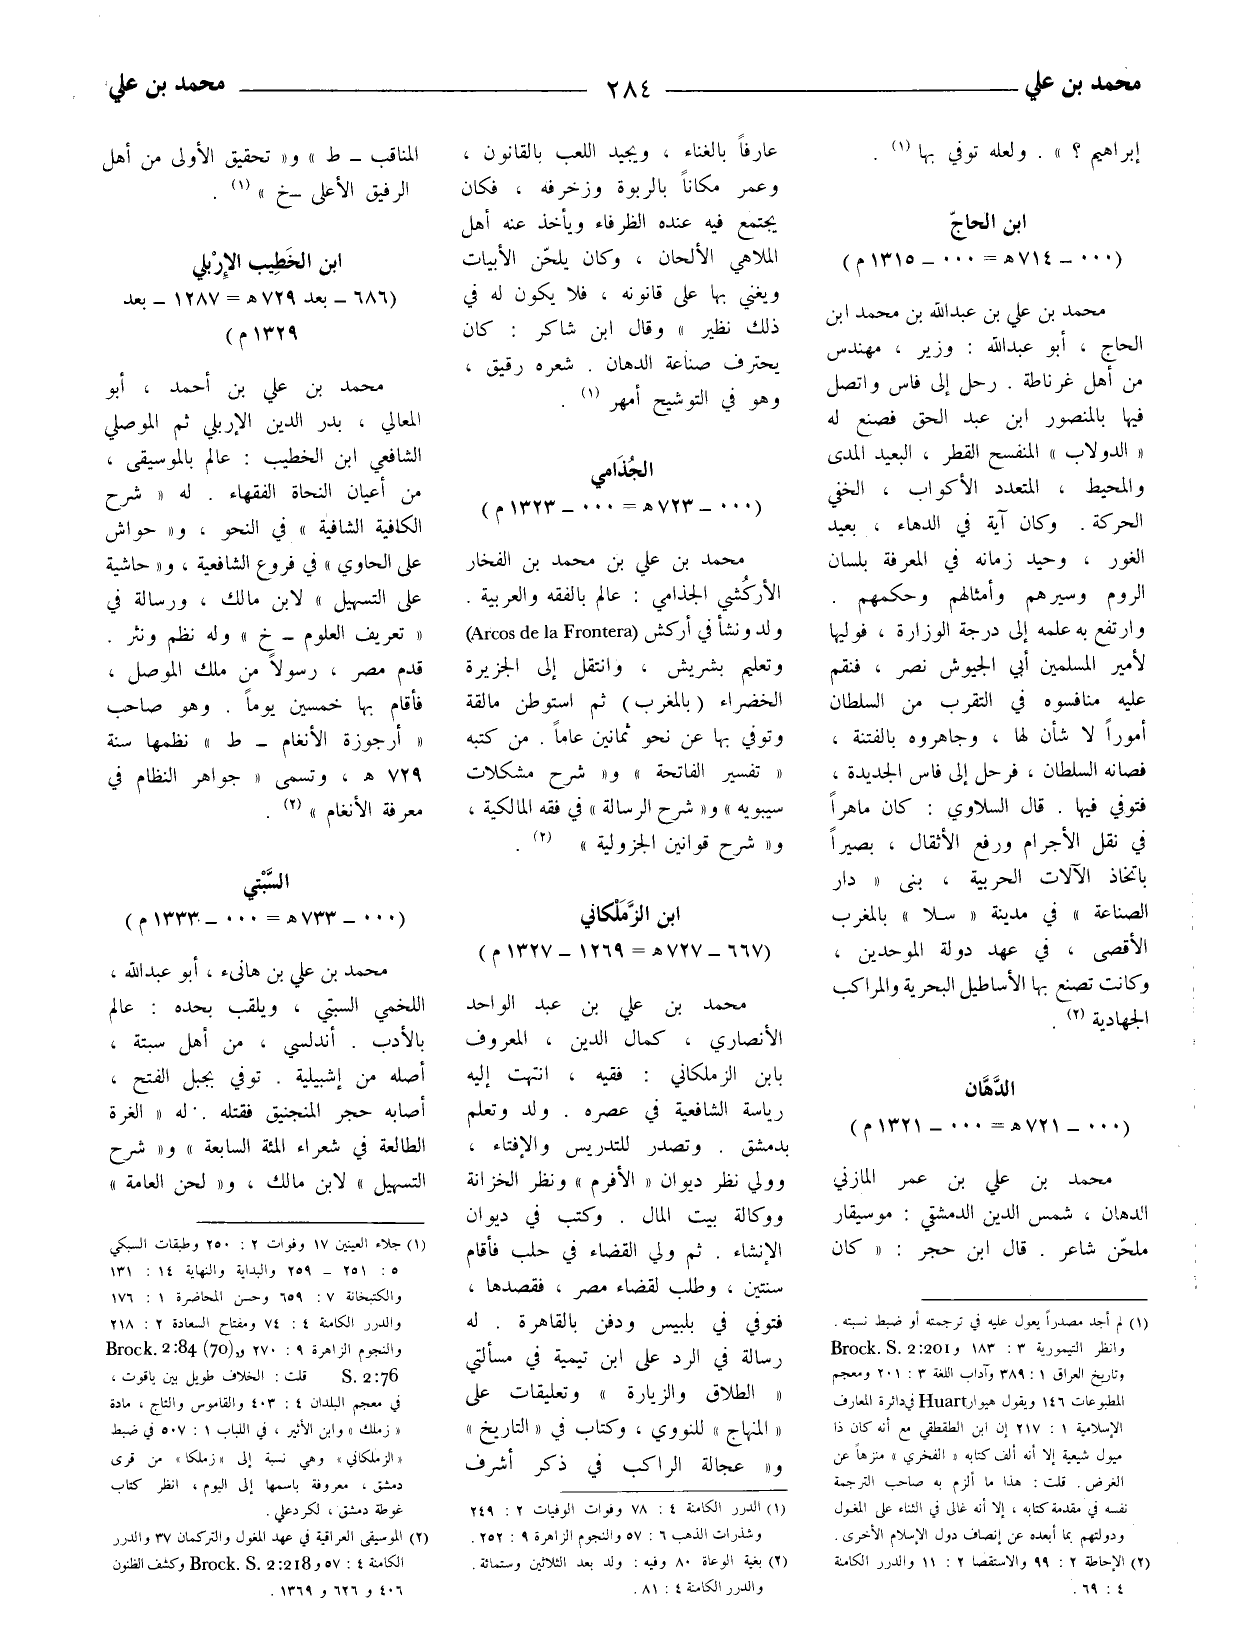 محمد بن علي ٢٨٤ محمد بن علي
إبراهيم ؟ » . ولعله توفي بها (١) .
ابن الحاجّ
(٠٠٠ ــ ٧١٤هـ = ٠٠٠ ــ ١٣١٥م)
محمد بن علي بن عبدالله بن محمد ابن
الحاج ، أبو عبدالله : وزير ، مهندس
من أهل غرناطة . رحل إلى فاس واتصل
فيها بالمنصور ابن عبد الحق فصنع له
« الدولاب » المنفسح القطر ، البعيد المدى
والمحيط ، المتعدد الأكواب ، الخفي
الحركة . وكان آية في الدهاء ، بعيد
الغور ، وحيد زمانه في المعرفة بلسان
الروم وسيرهم وأمثالهم وحكمهم .
وارتفع به علمه إلى درجة الوزارة ، فوليها
لأمير المسلمين أبي الجيوش نصر ، فنقم
عليه منافسوه في التقرب من السلطان
أموراً لا شأن لها ، وجاهروه بالفتنة ،
فصانه السلطان ، فرحل إلى فاس الجديدة ،
فتوفي فيها . قال السلاوي : كان ماهراً
في نقل الأجرام ورفع الأثقال ، بصيراً
باتخاذ الآلات الحربية ، بنى « دار
الصناعة » في مدينة « سلا » بالمغرب
الأقصى ، في عهد دولة الموحدين ،
وكانت تصنع بها الأساطيل البحرية والمراكب
الجهادية (٢) .
الدَّهَّان
(٠٠٠ ــ ٧٢١هـ = ٠٠٠ ــ ١٣٢١م)
محمد بن علي بن عمر المازني
الدهان ، شمس الدين الدمشقي : موسيقار
ملحّن شاعر . قال ابن حجر : « كان
(١) لم أجد مصدراً يعول عليه في ترجمته أو ضبط نسبته .
وانظر التيمورية ٣ : ١٨٣ و Brock. S. 2:201
وتاريخ العراق ١ : ٣٨٩ وآداب اللغة ٣ : ٢٠١ ومعجم
المطبوعات ١٤٦ ويقول هيوار Huart في دائرة المعارف
الإسلامية ١ : ٢١٧ إن ابن الطقطقي مع أنه كان ذا
ميول شيعية إلا أنه ألف كتابه « الفخري » منزهاً عن
الغرض . قلت : هذا ما ألزم به صاحب الترجمة
نفسه في مقدمة كتابه ، إلا أنه غالى في الثناء على المغول
ودولتهم بما أبعده عن إنصاف دول الإسلام الأخرى .
(٢) الإحاطة ٢ : ٩٩ والاستقصا ٢ : ١١ والدرر الكامنة
٤ : ٦٩ .
عارفاً بالغناء ، ويجيد اللعب بالقانون ،
وعمر مكاناً بالربوة وزخرفه ، فكان
يجتمع فيه عنده الظرفاء ويأخذ عنه أهل
الملاهي الألحان ، وكان يلحّن الأبيات
ويغني بها على قانونه ، فلا يكون له في
ذلك نظير » وقال ابن شاكر : كان
يحترف صناعة الدهان . شعره رقيق ،
وهو في التوشيح أمهر (١) .
الجُذَامي
(٠٠٠ ــ ٧٢٣هـ = ٠٠٠ ــ ١٣٢٣م)
محمد بن علي بن محمد بن الفخار
الأركُشي الجذامي : عالم بالفقه والعربية .
ولد ونشأ في أركش (Arcos de la Frontera)
وتعليم بشريش ، وانتقل إلى الجزيرة
الخضراء (بالمغرب) ثم استوطن مالقة
وتوفي بها عن نحو ثمانين عاماً . من كتبه
« تفسير الفاتحة » و« شرح مشكلات
سيبويه » و« شرح الرسالة » في فقه المالكية ،
و« شرح قوانين الجزولية » (٢) .
ابن الزَّمَلْكاني
(٦٦٧ ــ ٧٢٧هـ = ١٢٦٩ ــ ١٣٢٧م)
محمد بن علي بن عبد الواحد
الأنصاري ، كمال الدين ، المعروف
بابن الزملكاني : فقيه ، انتهت إليه
رياسة الشافعية في عصره . ولد وتعلم
بدمشق . وتصدر للتدريس والإفتاء ،
وولي نظر ديوان « الأفرم » ونظر الخزانة
ووكالة بيت المال . وكتب في ديوان
الإنشاء . ثم ولي القضاء في حلب فأقام
سنتين ، وطلب لقضاء مصر ، فقصدها ،
فتوفي في بلبيس ودفن بالقاهرة . له
رسالة في الرد على ابن تيمية في مسألتي
« الطلاق والزيارة » وتعليقات على
« المنهاج » للنووي ، وكتاب في « التاريخ »
و« عجالة الراكب في ذكر أشرف
(١) الدرر الكامنة ٤ : ٧٨ وفوات الوفيات ٢ : ٢٤٩
وشذرات الذهب ٦ : ٥٧ والنجوم الزاهرة ٩ : ٢٥٢ .
(٢) بغية الوعاة ٨٠ وفيه : ولد بعد الثلاثين وستمائة .
والدرر الكامنة ٤ : ٨١ .
المناقب ــ ط » و« تحقيق الأولى من أهل
الرفيق الأعلى ــخ » (١) .
ابن الخَطِيب الإِرْبلي
(٦٨٦ ــ بعد ٧٢٩هـ = ١٢٨٧ ــ بعد
١٣٢٩م)
محمد بن علي بن أحمد ، أبو
المعالي ، بدر الدين الإربلي ثم الموصلي
الشافعي ابن الخطيب : عالم بالموسيقى ،
من أعيان النحاة الفقهاء . له « شرح
الكافية الشافية » في النحو ، و« حواش
على الحاوي » في فروع الشافعية ، و« حاشية
على التسهيل » لابن مالك ، ورسالة في
« تعريف العلوم ــ خ » وله نظم ونثر .
قدم مصر ، رسولاً من ملك الموصل ،
فأقام بها خمسين يوماً . وهو صاحب
« أرجوزة الأنغام ــ ط » نظمها سنة
٧٢٩ هـ ، وتسمى « جواهر النظام في
معرفة الأنغام » (٢) .
السَّبْتي
(٠٠٠ ــ ٧٣٣هـ = ٠٠٠ ــ ١٣٣٣م)
محمد بن علي بن هانىء ، أبو عبدالله ،
اللخمي السبتي ، ويلقب بجده : عالم
بالأدب . أندلسي ، من أهل سبتة ،
أصله من إشبيلية . توفي بجبل الفتح ،
أصابه حجر المنجنيق فقتله . له « الغرة
الطالعة في شعراء المئة السابعة » و« شرح
التسهيل » لابن مالك ، و« لحن العامة »
(١) جلاء العينين ١٧ وفوات ٢ : ٢٥٠ وطبقات السبكي
٥ : ٢٥١ ــ ٢٥٩ والبداية والنهاية ١٤ : ١٣١
والكتبخانة ٧ : ٦٥٩ وحسن المحاضرة ١ : ١٧٦
والدرر الكامنة ٤ : ٧٤ ومفتاح السعادة ٢ : ٢١٨
والنجوم الزاهرة ٩ : ٢٧٠ و Brock. 2:84 (70),
S. 2:76 قلت : الخلاف طويل بين ياقوت ،
في معجم البلدان ٤ : ٤٠٣ والقاموس والتاج ، مادة
« زملك » وابن الأثير ، في اللباب ١ : ٥٠٧ في ضبط
«الزملكاني» وهي نسبة إلى «زملكا» من قرى
دمشق ، معروفة باسمها إلى اليوم ، انظر كتاب
غوطة دمشق ، لكردعلي .
(٢) الموسيقى العراقية في عهد المغول والتركمان ٣٧ والدرر
الكامنة ٤ : ٥٧ و Brock. S. 2:218 وكشف الظنون
٤٠٦ و ٦٢٦ و ١٣٦٩ .